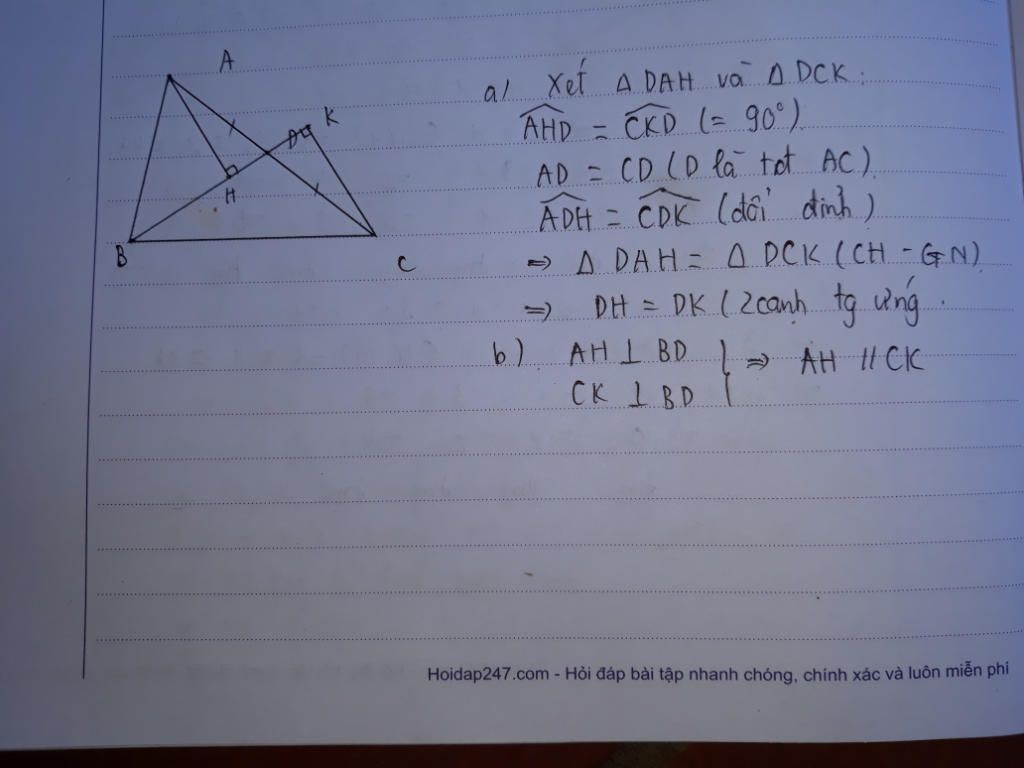 A
K
D
H
B
C
a) Xét Δ DAH và Δ DCK:
AHD = CKD (= 90°).
AD = CD (D là tđt AC).
ADH = CDK (đối đỉnh)
=> Δ DAH = Δ DCK (CH - GN)
=> DH = DK (2 cạnh tg ứng.
b) AH ⊥ BD
CK ⊥ BD } => AH // CK
Hoidap247.com - Hỏi đáp bài tập nhanh chóng, chính xác và luôn miễn phí